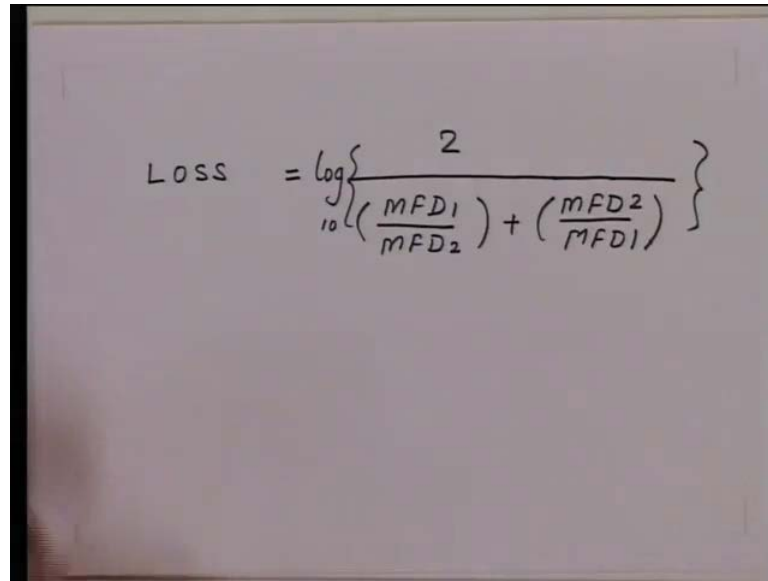 2
LOSS = log10 { ――――――― }
(MFD1/MFD2) + (MFD2/MFD1)